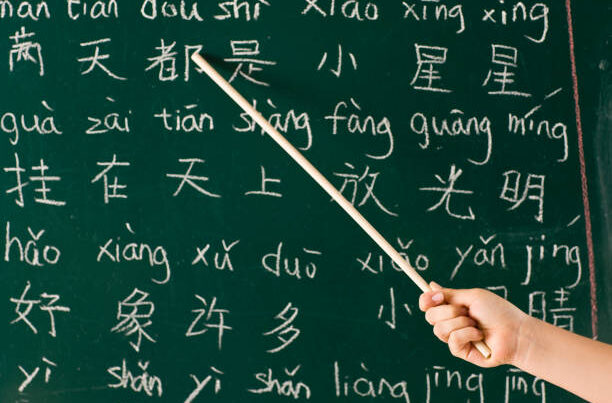 mǎn tiān dōu shì xiǎo xīng xing
满天都是小星星
guà zài tiān shàng fàng guāng míng
挂在天上放光明
hǎo xiàng xǔ duō xiǎo yǎn jīng
好象许多小晴
yì shǎn yì shǎn liàng jīng jīng